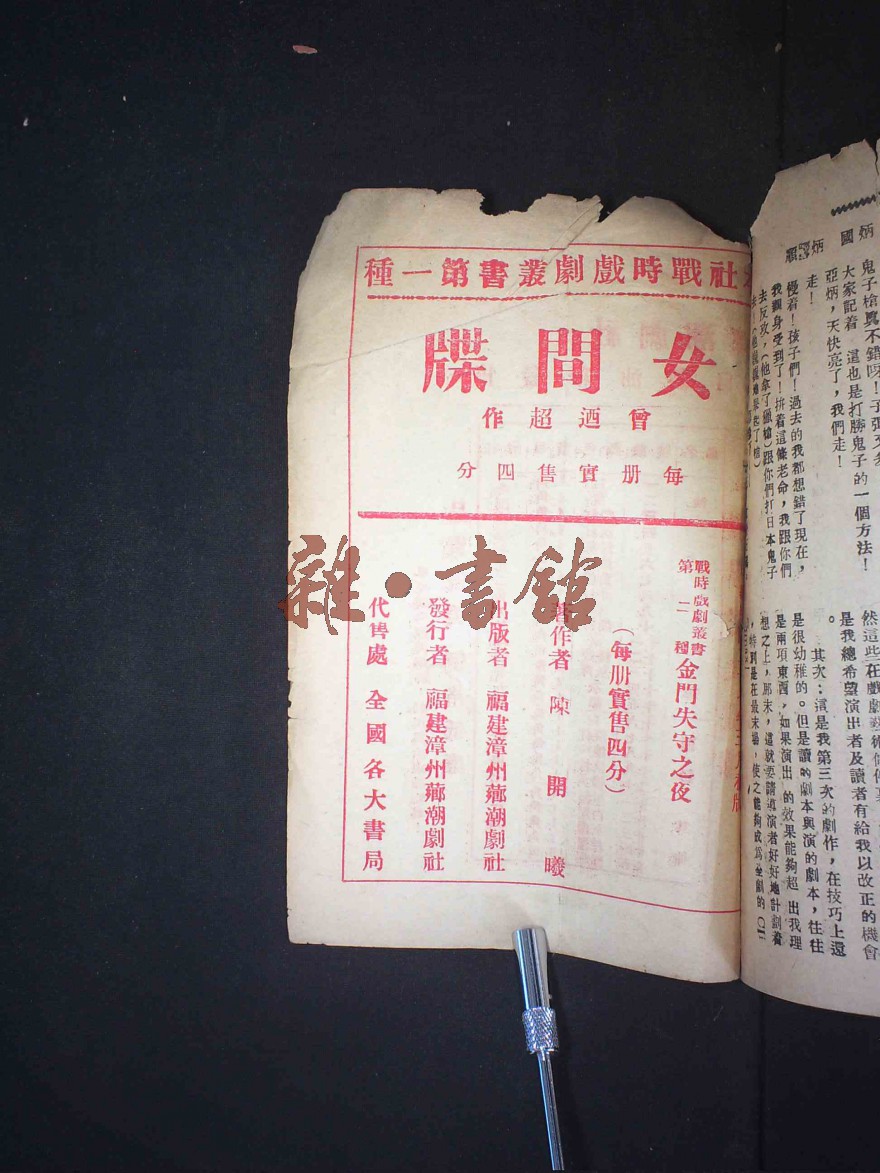 社戰時戲劇叢書第一種
女間牒
曾迺超作
每册實售四分
戰時戲劇叢書
第二種
金門失守之夜
(每册實售四分)
著作者 陳開曦
出版者 福建漳州薌潮劇社
發行者 福建漳州薌潮劇社
代售處 全國各大書局
雜·書館
鬼子槍眞不錯呀!子彈又多
國 大家記着 這也是打勝鬼子的一個方法!
炳 亞炳,天快亮了,我們走!
走!
慢着!孩子們!過去的我都想錯了現在,
我親身受到了!拚着這條老命,我跟你們
去反攻,(他拿了獵槍)跟你們打日本鬼子
然這些在戲劇藝術
是我總希望演出者及讀者有給我以改正的機會
。
其次:這是我第三次的劇作,在技巧上還
是很幼稚的。但是讀的劇本與演的劇本,往往
是兩項東西,如果演出 的效果能夠超 出我理
想之上,那末,這就要請導演者好好地計劃着
,特別是在最末場,使之能夠成爲全劇的